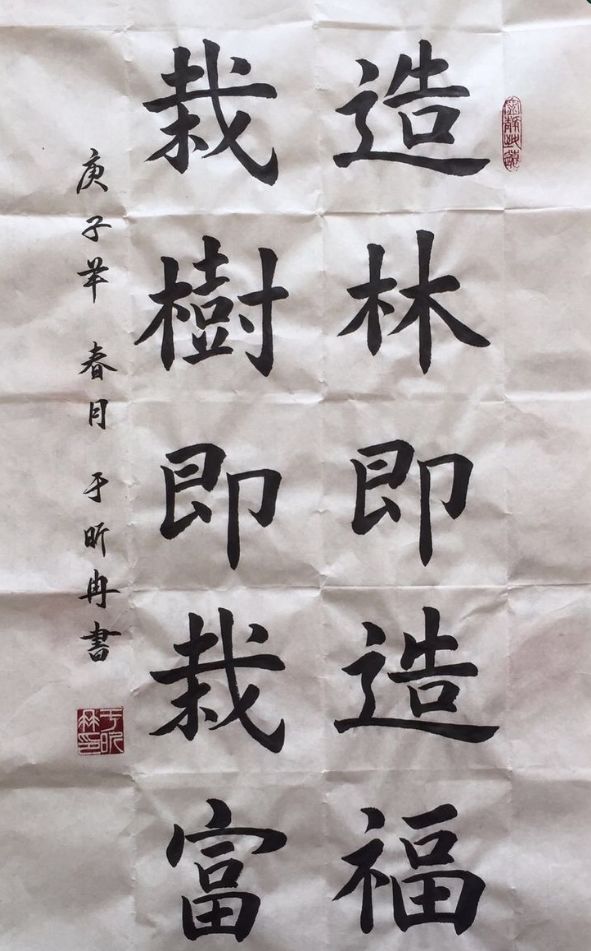 造林即造福
栽樹即栽富
庚子年 春月 于昕冉書
于昕冉印